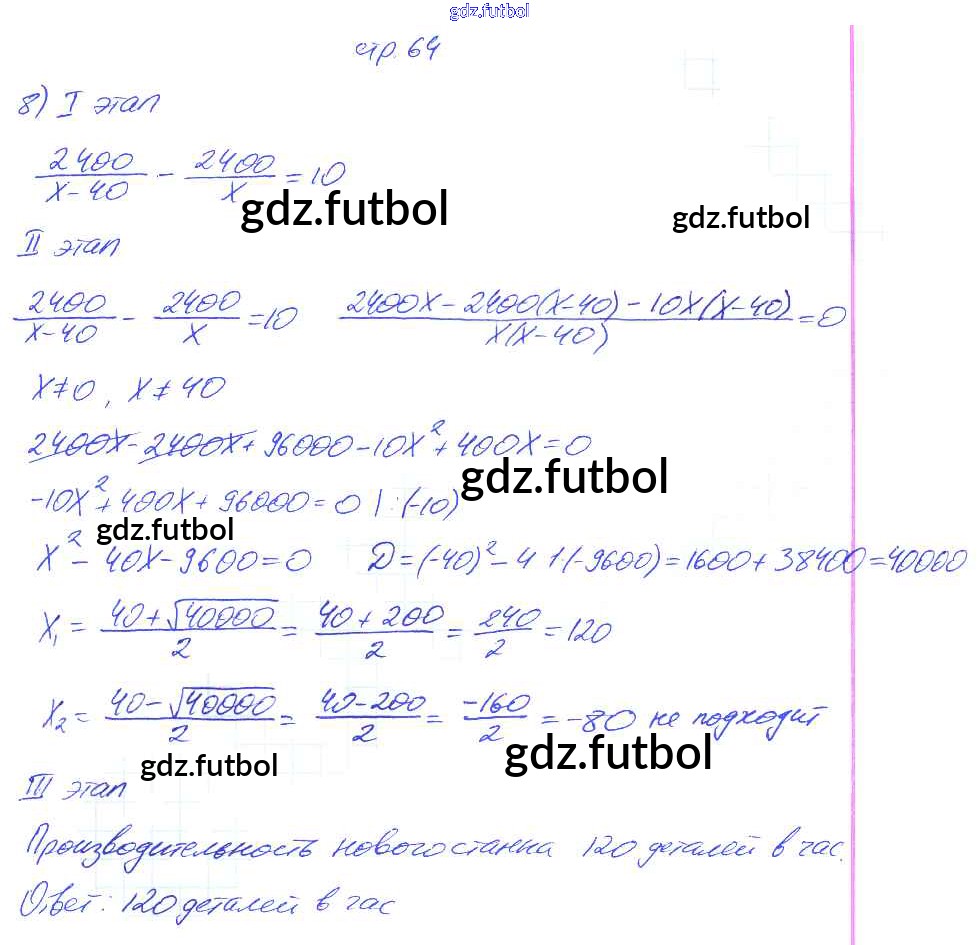 gdz.futbol
стр. 64
8) I этап
2400/(x-40) - 2400/x = 10
gdz.futbol gdz.futbol
II этап
2400/(x-40) - 2400/x = 10 (2400x - 2400(x-40) - 10x(x-40))/(x(x-40)) = 0
x ≠ 0, x ≠ 40
2400x - 2400x + 96000 - 10x² + 400x = 0
gdz.futbol
-10x² + 400x + 96000 = 0 | : (-10)
gdz.futbol
x² - 40x - 9600 = 0 D = (-40)² - 4·1·(-9600) = 1600 + 38400 = 40000
x₁ = (40 + √40000)/2 = (40 + 200)/2 = 240/2 = 120
x₂ = (40 - √40000)/2 = (40 - 200)/2 = -160/2 = -80 не подходит
gdz.futbol gdz.futbol
III этап
Производительность нового станка 120 деталей в час.
Ответ: 120 деталей в час